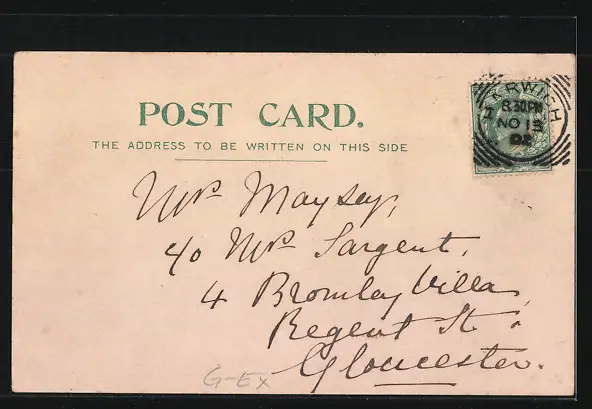 POST CARD.
THE ADDRESS TO BE WRITTEN ON THIS SIDE
HARWICH
8.30PM
NO 13
02
Mrs Maysey,
c/o Mrs Sargent,
4 Bromley Villa
Regent St
Gloucester.
G-Ex